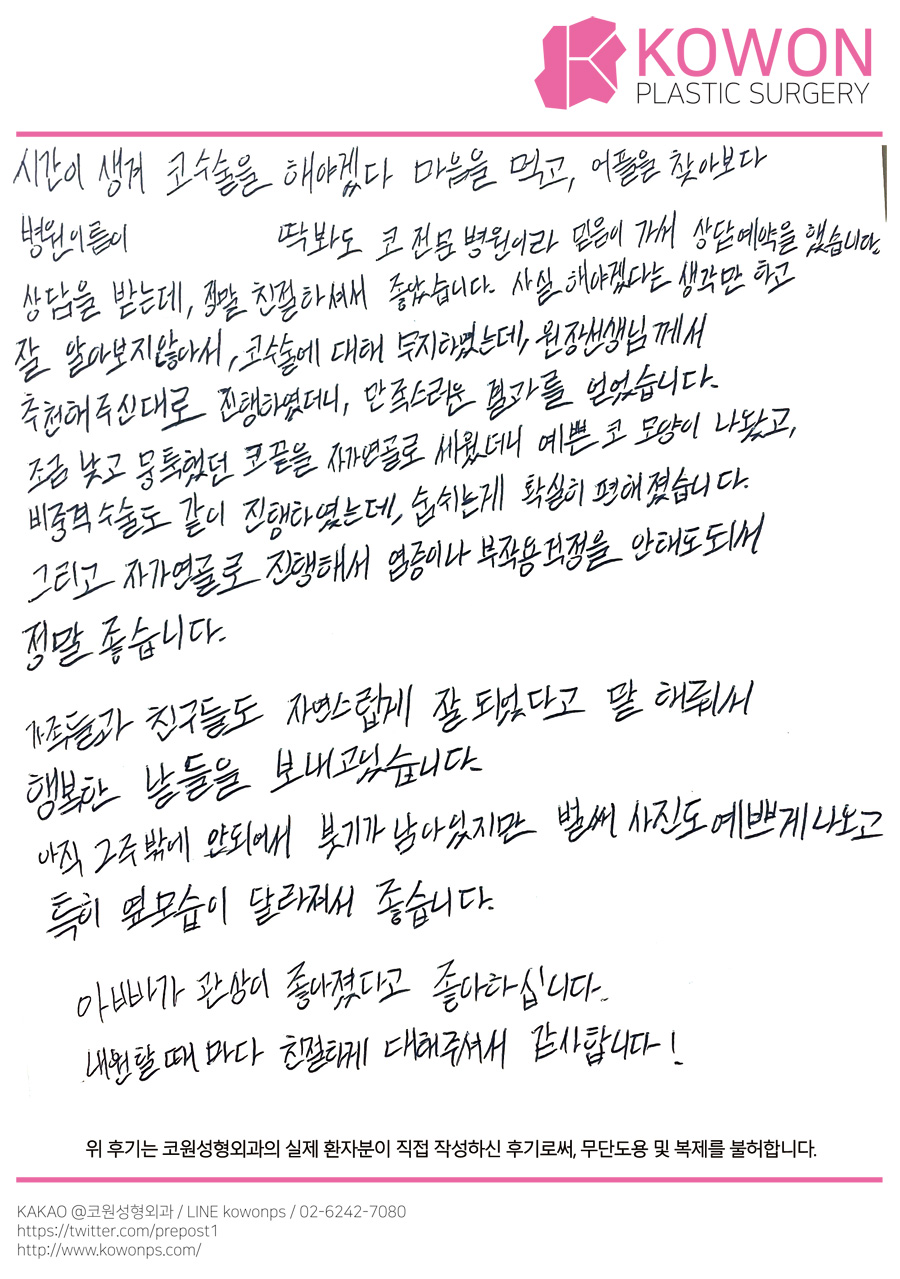 KOWON
PLASTIC SURGERY
시간이 생겨 코수술을 해야겠다 마음을 먹고, 어플을 찾아보다
병원이름이 딱봐도 코 전문 병원이라 믿음이 가서 상담예약을 했습니다.
상담을 받는데, 정말 친절하셔서 좋았습니다. 사실 해야겠다는 생각만 하고
잘 알아보지않아서, 코수술에 대해 무지하였는데, 원장선생님께서
추천해주신대로 진행하였더니, 만족스러운 결과를 얻었습니다.
조금 낮고 뭉툭했던 코끝을 자가연골로 세웠더니 예쁜 코 모양이 나왔고,
비중격수술도 같이 진행하였는데, 숨쉬는게 확실히 편해졌습니다.
그리고 자가연골로 진행해서 염증이나 부작용걱정을 안해도되서
정말 좋습니다.
가족들과 친구들도 자연스럽게 잘 되었다고 말 해줘서
행복한 날들을 보내고있습니다.
아직 2주밖에 안되어서 붓기가 남아있지만 벌써 사진도 예쁘게 나오고
특히 옆모습이 달라져서 좋습니다.
아빠가 관상이 좋아졌다고 좋아하십니다.
내원할 때 마다 친절하게 대해주셔서 감사합니다!
위 후기는 코원성형외과의 실제 환자분이 직접 작성하신 후기로써, 무단도용 및 복제를 불허합니다.
KAKAO @코원성형외과 / LINE kowonps / 02-6242-7080
https://twitter.com/prepost1
http://www.kowonps.com/